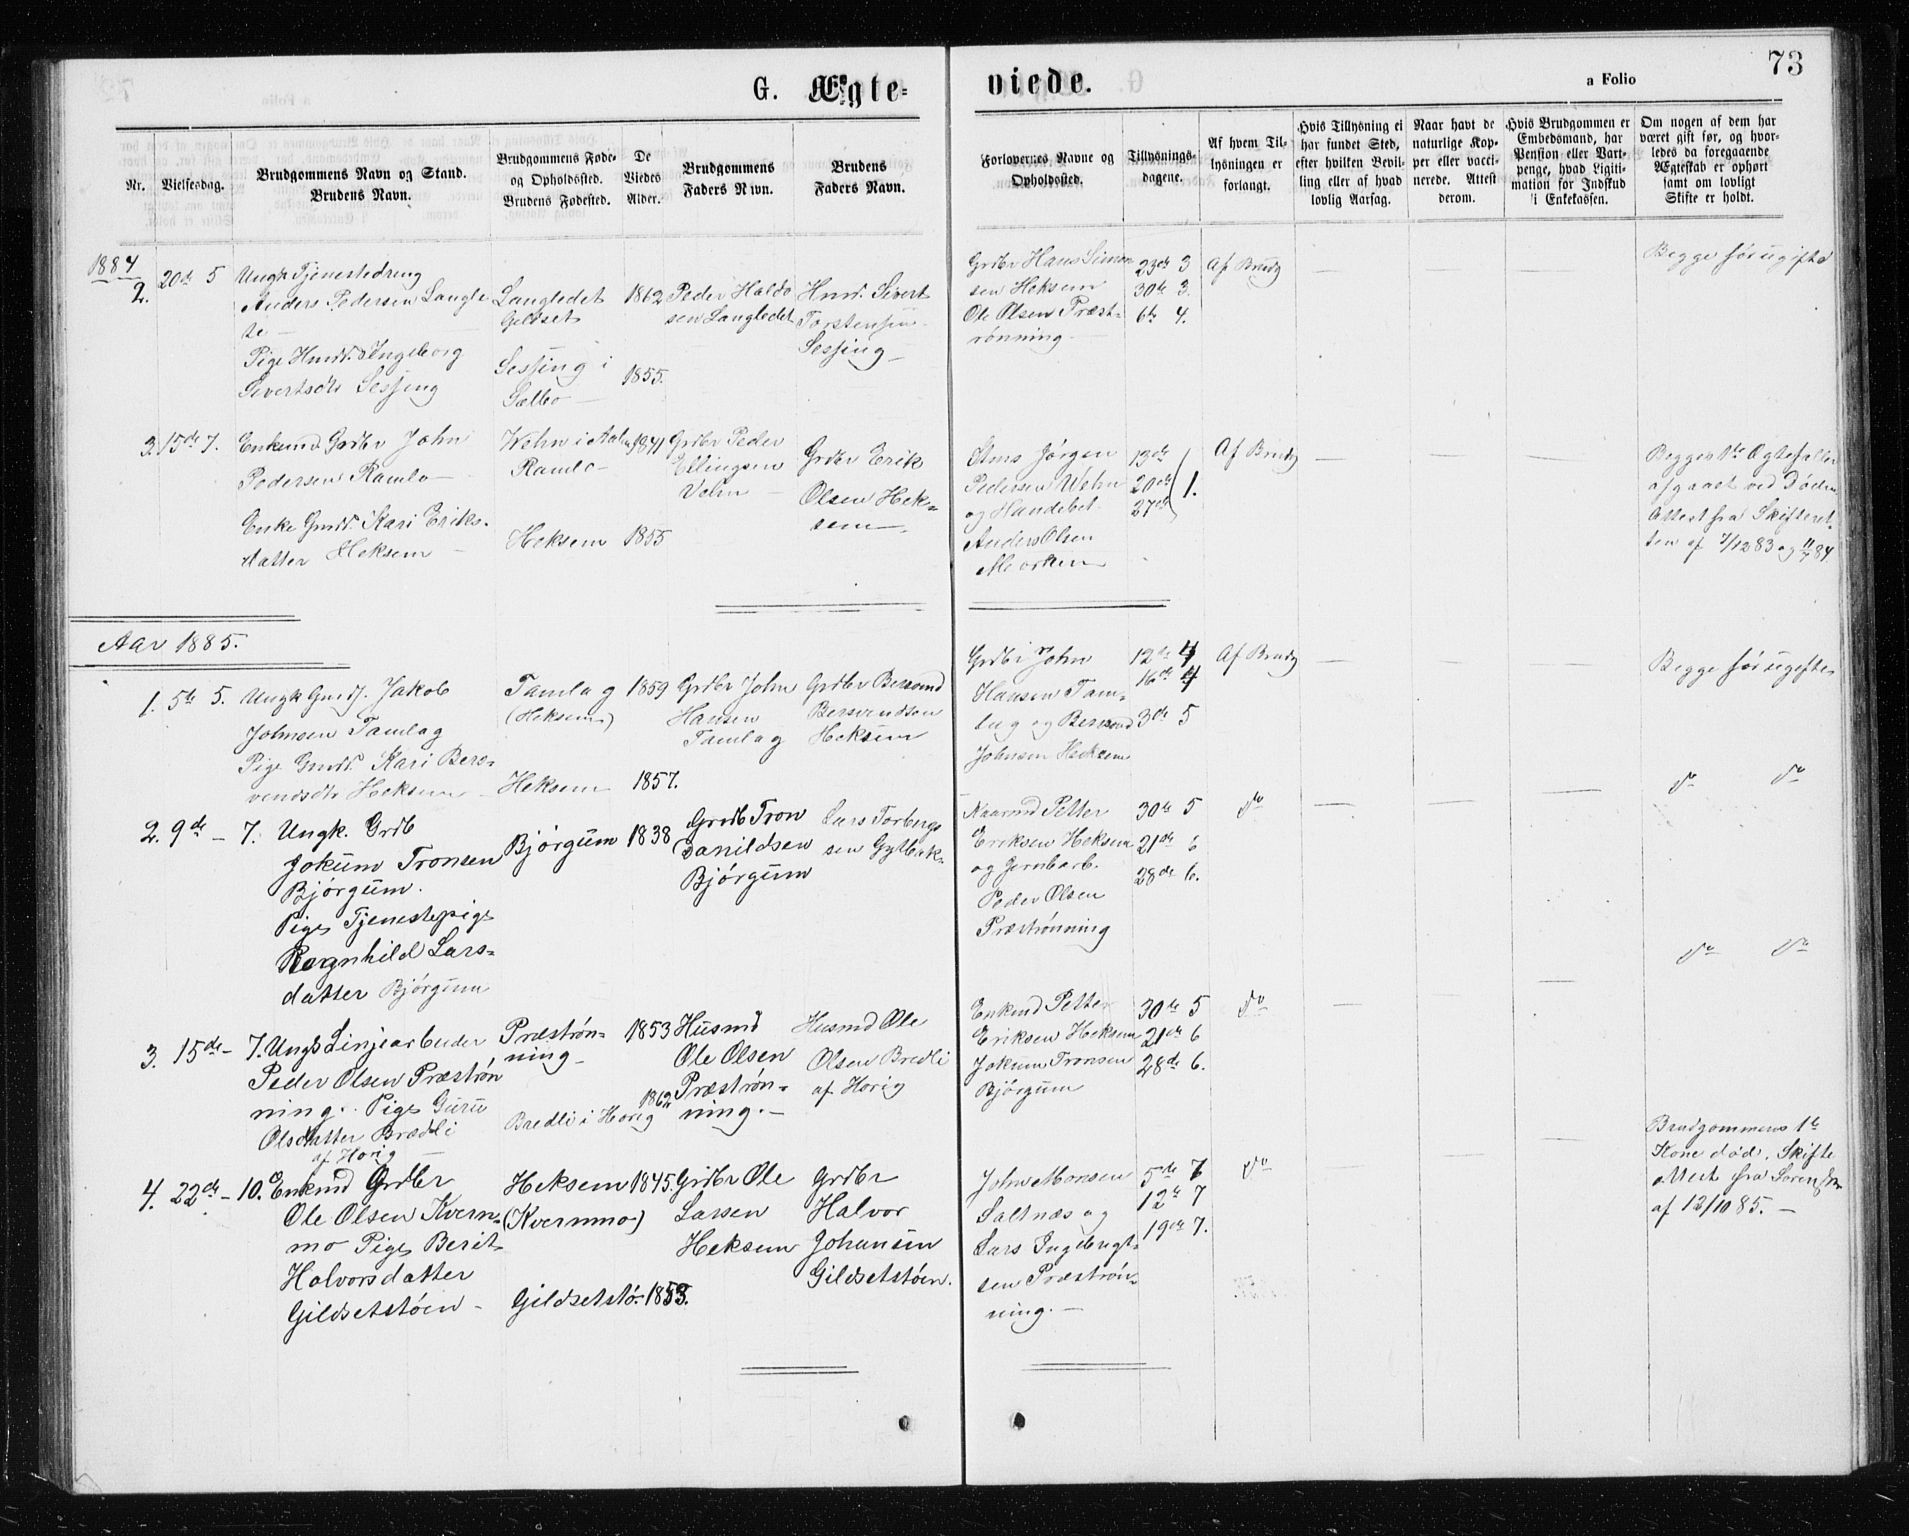 G. Ægte=
viede.
a Folio
73
Nr.
Vielsesdag.
Brudgommens Navn og Stand.
Brudens Navn.
Brudgommens Føde-
og Opholdssted.
Brudens Fødested.
De
Viedes
Alder.
Brudgommens
Faders Navn.
Brudens
Faders Navn.
Forlovernes Navne og
Opholdssted.
Tillysnings-
dagene.
Af hvem Til-
lysningen er
forlangt.
Hvis Tillysning ei
har fundet Sted,
efter hvilken Bevil-
ling eller af hvad
lovlig Aarsag.
Naar havt de
naturlige Kop-
per eller vacci-
nerede. Attest
derom.
Hvis Brudgommen er
Embedsmand, har
Pension eller Vart-
penge, hvad Legiti-
mation for Indskud
i Enkekassen.
Om nogen af dem har
været gift før, og hvor-
ledes da foregaaende
Ægteskab er ophørt
samt om lovligt
Skifte er holdt.
1884
2.
20de 5
Ungk Tjenestedreng
Anders Pedersen Langle
te —
Pige Hmdd. Ingeborg
Sivertsdtr Sessing
Langledet
Gildset
Sessing i
Sælbo —
1862
1855.
Peder Haldo
sen Langledet
Hmd. Sivert
Torstensen
Sessing —
Grdbr Hans Simon
sen Heksem
Ole Olsen Præst=
rønning —
23de 3
30te 3.
6te 4.
Af Brudg
—
Begge før ugifte
3.
15de 7.
Enkemd Gardbr John
Pedersen Ramlo —
Enke Gmdd. Kari Eriks.
datter Heksem —
Wehn i Aalen
Ramlo —
Heksem
1841
1855
Grdbr Peder
Ellingsen
Vehn —
Grdbr Erik
Olsen Hek=
sem —
Jørgen
Pedersen Wehn
og Handebet.
Anders Olsen
Morken
13de
20de
27de
1.
Af Brudg
—
—
—
Begges 1te Ægtefæller
afgaaet ved Døden
Attest fra Skifteret-
ten af 7/12 83 og 11/7 84.
Aar 1885.
1.
5te 5.
Ungk Gmds. Jakob
Johnsen Tamlag
Pige Gmdd. Kari Bers=
vendsdtr Heksem —
Tamlag
(Heksem)
Heksem
1859
1857.
Grdbr John
Hansen
Tamlag
Grdbr Bersvend
Bersvendsen
Heksem
Grdbr John
Hansen Tam=
lag og Bersvend
Johnsen Heksem
12te 4
16de 4
3de 5
Af Brudg
—
—
—
Begge før ugifte
2.
9de — 7.
Ungk. Grdb
Jokum Tronsen
Bjørgum.
Pige Tjenestepige
Ragnhild Lars=
datter Bjørgum
Bjørgum
1838
Grdb Tron
Danildsen
Bjørgum
Lars Torbergs
sen Gylbak.
Naarmd Petter
Eriksen Heksem
og Jernbarb.
Peder Olsen
Præstrønning
30te 5
21de 6
28de 6.
do
—
—
—
do do
3.
15de — 7.
Ungk Linjearbeider
Peder Olsen Præstrøn
ning. Pige Guru
Olsdatter Brædli
af Horig —
Præstrøn=
ning —
Bredli i Horig
1853
1862
Husmd
Ole Olsen
Præstrøn=
ning. —
Husmd Ole
Olsen Bredli
af Horig
Enkemd Petter
Eriksen Heksem
Jokum Tronsen
Bjørgum
30te 5
21de 6
28d 6.
do
—
—
—
do do
4.
22de — 10.
Enkmd Grdbr
Ole Olsen Kvern=
mo Pige Berit
Halvorsdatter
Gildsetstøen —
Heksem
(Kvernmo)
Gildsetstø —
1845.
1853.
Grdbr Ole
Larsen
Heksem
Grdbr
Halvor
Johansen
Gildsetstøen.
John Monsen
Saltnæs og
Lars Ingebrigt=
sen Præstrøn=
ning. —
5te 7
12te 7
19de 7.
do
—
—
Brudgommens 1te
Kone død. Skifte
Attest fra Sorensk
af 12/10 85. —